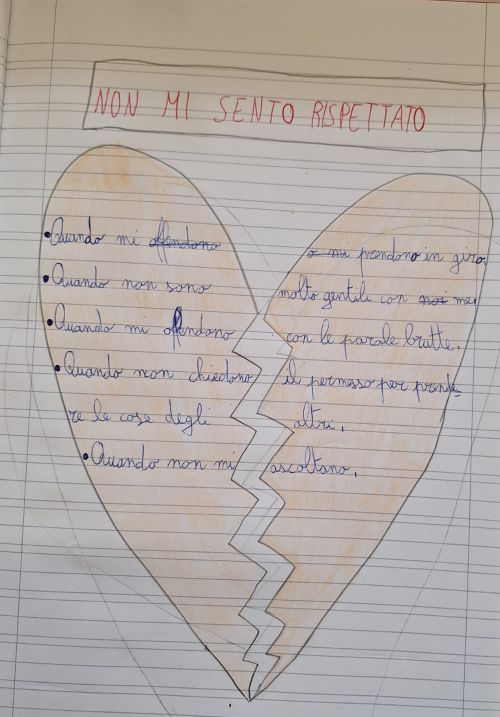 NON MI SENTO RISPETTATO
•Quando mi offendono o mi prendono in giro.
•Quando non sono molto gentili con noi me.
•Quando mi offendono con le parole brutte.
•Quando non chiedono il permesso per prende-
re le cose degli altri.
•Quando non mi ascoltano.